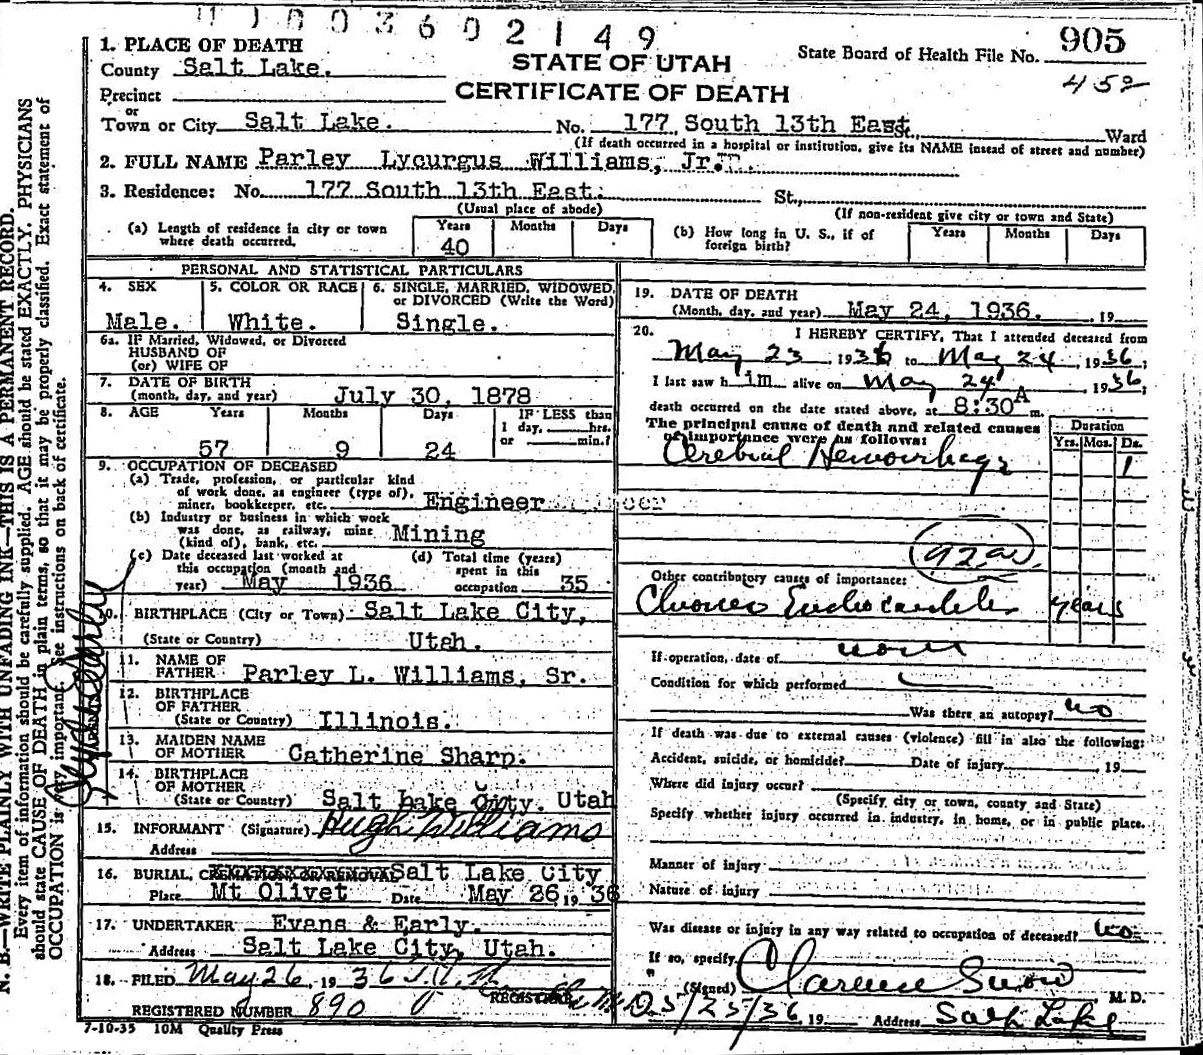 003602149
1. PLACE OF DEATH
County Salt Lake.
STATE OF UTAH
State Board of Health File No. 905
Precinct
CERTIFICATE OF DEATH
452
or
Town or City Salt Lake. No. 177 South 13th East. Ward
(If death occurred in a hospital or institution, give its NAME instead of street and number)
2. FULL NAME Parley Lycurgus Williams, Jr.
3. Residence: No. 177 South 13th East. St.,
(Usual place of abode) (If non-resident give city or town and State)
(a) Length of residence in city or town where death occurred. Years 40 Months Days
(b) How long in U. S., if of foreign birth? Years Months Days
PERSONAL AND STATISTICAL PARTICULARS
4. SEX Male.
5. COLOR OR RACE White.
6. SINGLE, MARRIED, WIDOWED, or DIVORCED (Write the Word) Single.
6a. IF Married, Widowed, or Divorced
HUSBAND OF
(or) WIFE OF
7. DATE OF BIRTH
(month, day, and year) July 30, 1878
8. AGE Years Months Days IF LESS than
1 day, hrs.
or min.?
57 9 24
9. OCCUPATION OF DECEASED
(a) Trade, profession, or particular kind
of work done, as engineer (type of),
miner, bookkeeper, etc. Engineer
(b) Industry or business in which work
was done, as railway, mine
(kind of), bank, etc. Mining
(c) Date deceased last worked at
this occupation (month and
year) May 1936
(d) Total time (years)
spent in this
occupation 35
10. BIRTHPLACE (City or Town) Salt Lake City,
(State or Country) Utah.
11. NAME OF
FATHER Parley L. Williams, Sr.
12. BIRTHPLACE
OF FATHER
(State or Country) Illinois.
13. MAIDEN NAME
OF MOTHER Catherine Sharp.
14. BIRTHPLACE
OF MOTHER
(State or Country) Salt Lake City, Utah
15. INFORMANT (Signature) Hugh Williams
Address
16. BURIAL, CREMATION, OR REMOVAL Salt Lake City
Place Mt Olivet Date May 26, 1936
17. UNDERTAKER Evans & Early.
Address Salt Lake City, Utah.
18. FILED May 26, 1936
REGISTRAR
REGISTERED NUMBER 890
7-10-35 10M Quality Press
19. DATE OF DEATH
(Month, day, and year) May 24, 1936. , 19
20. I HEREBY CERTIFY, That I attended deceased from
May 23, 1936 to May 24, 1936,
I last saw him alive on May 24, 1936,
death occurred on the date stated above, at 8:30 A m.
The principal cause of death and related causes
of importance were as follows:
Duration
Yrs. Mos. Ds.
Cerebral Hemorrhage 1
92a
Other contributory causes of importance:
Chronic Endocarditis years
If operation, date of none
Condition for which performed
Was there an autopsy? no
If death was due to external causes (violence) fill in also the following:
Accident, suicide, or homicide? Date of injury 19
Where did injury occur?
(Specify city or town, county and State)
Specify whether injury occurred in industry, in home, or in public place.
Manner of injury
Nature of injury
Was disease or injury in any way related to occupation of deceased? no
If so, specify
(Signed) Clarence Snow M. D.
5/25/36 19 Address Salt Lake
N. B.—WRITE PLAINLY WITH UNFADING INK—THIS IS A PERMANENT RECORD.
Every item of information should be carefully supplied. AGE should be stated EXACTLY. PHYSICIANS
should state CAUSE OF DEATH in plain terms, so that it may be properly classified. Exact statement of
OCCUPATION is very important. See instructions on back of certificate.